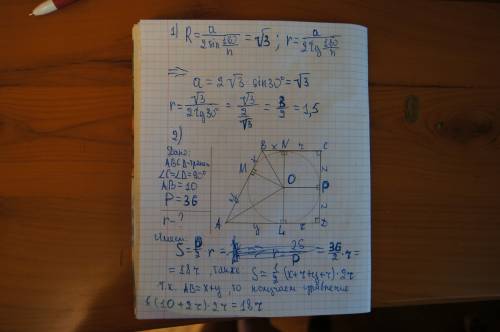 1) R = a / 2sin 180/n = √3 ; r = a / 2tg 180/n
⇒ a = 2√3 sin30° = √3
r = √3 / 2tg30° = √3 / 2/√3 = 3/2 = 1,5
2)
Дано:
ABCD-трапец
∠C=∠D=90°
AB=10
P=36
r-?
B x N r C
x
M
O
P
y
r
r
A y L r D
S = P/2 r = 36/2 · r =
= 18r , также S = 1/2 (x+r+y+r)·2r
т.к. AB=x+y, то получаем уравнение
(10+2r)·2r=18r